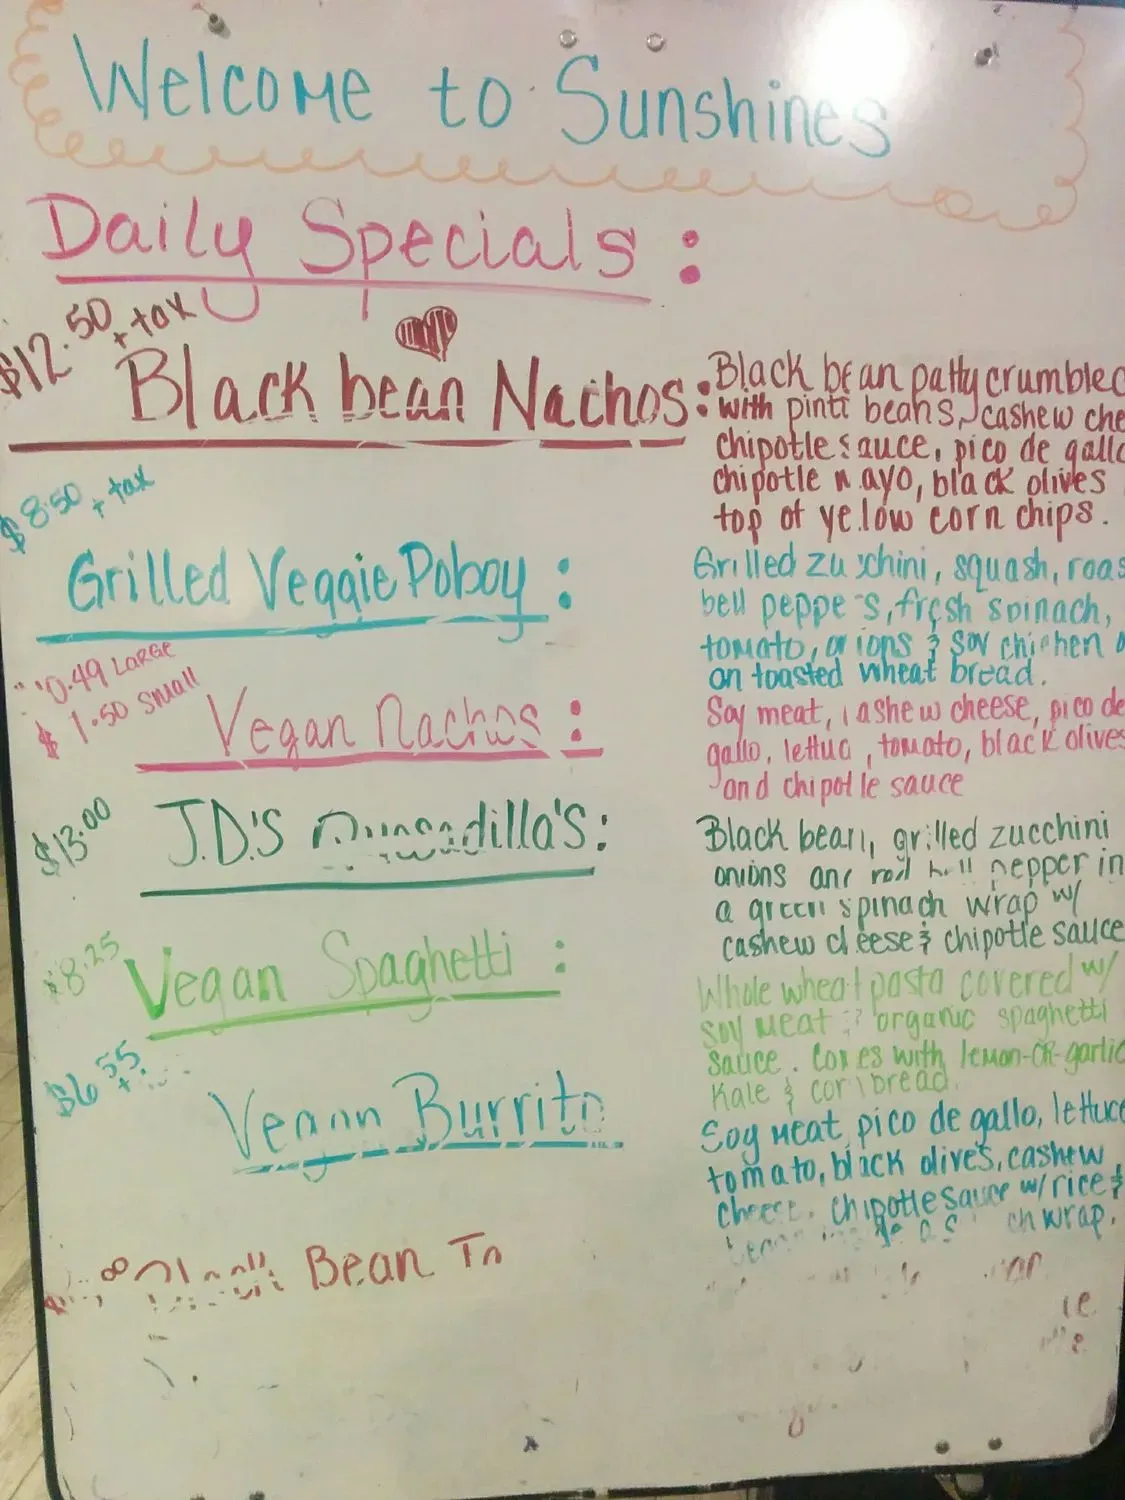 Welcome to Sunshines
Daily Specials:
$12.50 + tax
Black bean Nachos:
Black bean patty crumbled
with pinti beans, cashew che
chipotle sauce, pico de gallo
chipotle mayo, black olives
top of yellow corn chips.
$8.50 + tax
Grilled Veggie Poboy:
Grilled zucchini, squash, roas
bell peppers, fresh spinach,
tomato, onions & soy chicken
on toasted wheat bread.
0.49 LARGE
$1.50 small
Vegan Nachos:
Soy meat, cashew cheese, pico de
gallo, lettuc, tomato, black olives
and chipotle sauce
$13.00
J.D.'S Quesadilla's:
Black bean, grilled zucchini
onions and red bell pepper in
a green spinach wrap w/
cashew cheese & chipotle sauce
$8.25
Vegan Spaghetti:
Whole wheat pasta covered w/
soy meat & organic spaghetti
sauce. Comes with lemon-OR-garlic
Kale & cornbread.
$6.55 +
Vegan Burrito
Soy meat, pico de gallo, lettuce
tomato, black olives, cashew
cheese, chipotle sauce w/ rice &
wrap.
Bean